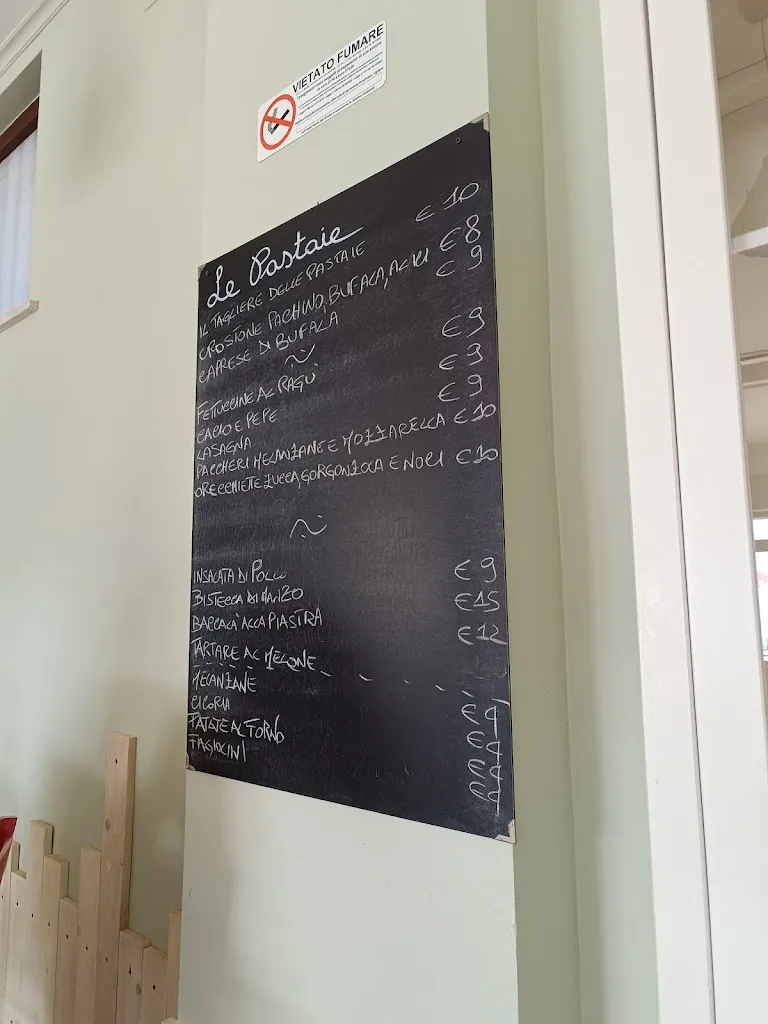 VIETATO FUMARE
Le Pastaie
IL TAGLIERE DELLE PASTAIE € 10
CROSIONE PACHINO, BUFALA, ALICI € 8
CAPRESE DI BUFALA € 9
FETTUCCINE AL RAGU' € 9
CACIO E PEPE € 9
LASAGNA € 9
PACCHERI MELANZANE E MOZZARELLA € 10
ORECCHIETTE ZUCCA, GORGONZOLA E NOCI € 10
INSALATA DI POLLO € 9
BISTECCA DI MANZO € 15
BACCALA' ALLA PIASTRA € 12
TARTARE AL MELONE
MELANZANE € 4
CICORIA € 4
PATATE AL FORNO € 4
FAGIOLINI € 4